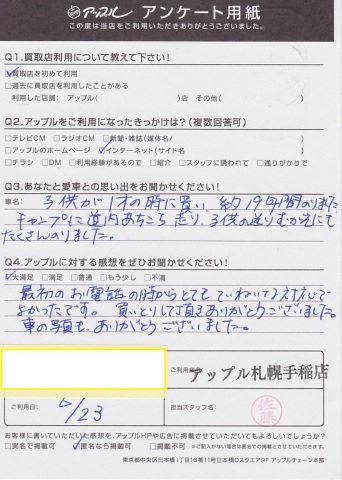 アップル アンケート用紙
この度は当店をご利用いただきありがとうございました。
Q1.買取店利用について教えて下さい!
☑買取店を初めて利用
□過去に買取店を利用したことがある
利用した店舗: アップル( )店 その他( )
Q2.アップルをご利用になったきっかけは?(複数回答可)
□テレビCM □ラジオCM □新聞・雑誌(媒体名/ )
□アップルのホームページ ☑インターネット(サイト名 )
□チラシ □DM □利用経験があるので □紹介 □スタッフに誘われて □通りがかりで
Q3.あなたと愛車との思い出をお聞かせください!
車名: 子供が1才の時に買い、約19年間のりました
キャンプに道内あちこち走り、子供の送りむかえにも
たくさんのりました。
Q4.アップルに対する感想をぜひお聞かせください!
☑大満足 □満足 □普通 □もう少し □不満
最初のお電話の時からとてもていねいな対応で
よかったです。買いとりして頂きありがとうございました。
車の写真も、ありがとうございました。
アップル札幌手稲店
ご利用日: 5/23
担当スタッフ名: 佐藤
お客様に書いていただいた感想を、アップルHPや広告に掲載させていただいてもよろしいでしょうか?
□実名で掲載可 ☑匿名なら掲載可 □掲載不可 ※ご記入がない場合は匿名での掲載とさせていただきます。
東京都中央区日本橋1丁目16番11号日本橋Dスクエア9F アップルチェーン本部